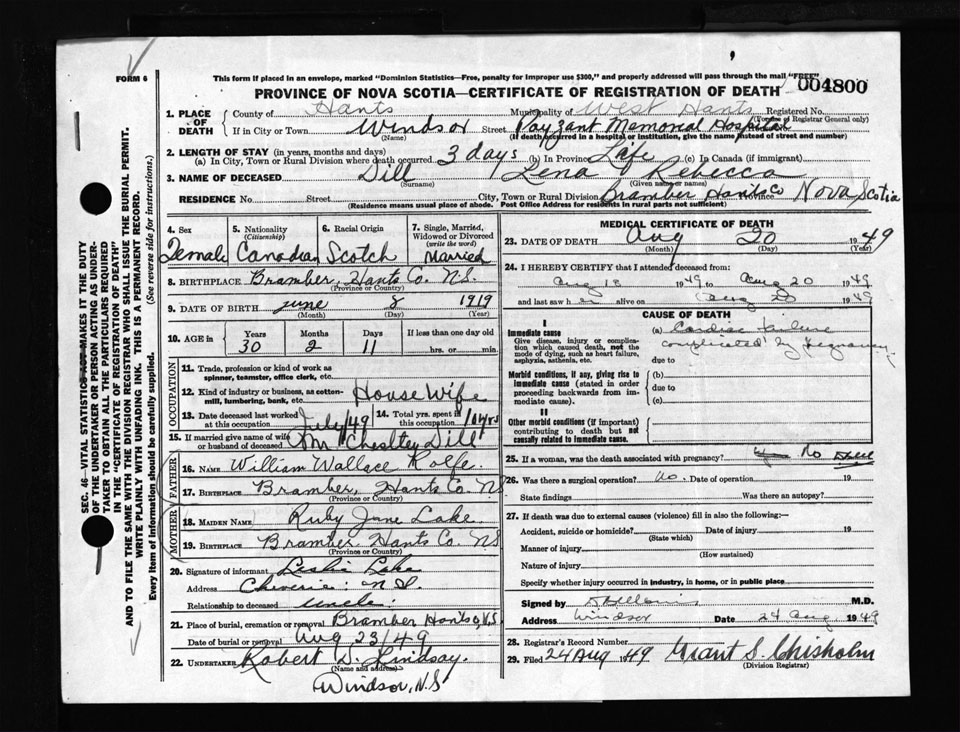 FORM 6
This form if placed in an envelope, marked "Dominion Statistics—Free, penalty for improper use $300," and properly addressed will pass through the mail "FREE"
PROVINCE OF NOVA SCOTIA—CERTIFICATE OF REGISTRATION OF DEATH 004800
1. PLACE OF DEATH County of Hants Municipality of West Hants Registered No.
(For use of Registrar General only)
If in City or Town Windsor Street Payzant Memorial Hospital
(Name) (If death occurred in a hospital or institution, give the name instead of street and number)
2. LENGTH OF STAY (in years, months and days)
(a) In City, Town or Rural Division where death occurred 3 days (b) In Province Life (c) In Canada (if immigrant)
3. NAME OF DECEASED Dill Lena Rebecca
(Surname) (Given name or names)
RESIDENCE No. Street City, Town or Rural Division Bramber Hants Co Province Nova Scotia
(Residence means usual place of abode. Post Office Address for residents in rural parts not sufficient)
4. Sex Female
5. Nationality (Citizenship) Canadian
6. Racial Origin Scotch
7. Single, Married, Widowed or Divorced (write the word) Married
8. BIRTHPLACE Bramber, Hants Co. N.S.
(Province or Country)
9. DATE OF BIRTH June 8 1919
(Month) (Day) (Year)
10. AGE in Years 30 Months 2 Days 11 If less than one day old hrs. or min.
OCCUPATION
11. Trade, profession or kind of work as spinner, teamster, office clerk, etc.
12. Kind of industry or business, as cotton-mill, lumbering, bank, etc. House Wife
13. Date deceased last worked at this occupation July/49 14. Total yrs. spent in this occupation 10 yrs
15. If married give name of wife or husband of deceased Mr Chesltey Dill
FATHER
16. NAME William Wallace Rolfe.
17. BIRTHPLACE Bramber, Hants Co. N.S
(Province or Country)
MOTHER
18. MAIDEN NAME Ruby Jane Lake
19. BIRTHPLACE Bramber. Hants Co. N.S
(Province or Country)
20. Signature of informant Leslie Lake
Address Cheverie: N S.
Relationship to deceased uncle.
21. Place of burial, cremation or removal Bramber Hants Co, N.S
Date of burial or removal Aug 23/49
22. UNDERTAKER Robert D. Lindsay.
(Name and address)
Windsor, N.S
MEDICAL CERTIFICATE OF DEATH
23. DATE OF DEATH Aug 20 1949
(Month) (Day) (Year)
24. I HEREBY CERTIFY that I attended deceased from:
Aug 18 1949 to Aug 20 1949
and last saw h er alive on Aug 20 1949
CAUSE OF DEATH
I
Immediate cause
Give disease, injury or complication which caused death, not the mode of dying, such as heart failure, asphyxia, asthenia, etc.
(a) Cardiac failure
complicated by pregnancy
due to
Morbid conditions, if any, giving rise to immediate cause (stated in order proceeding backwards from immediate cause).
(b)
due to
(c)
II
Other morbid conditions (if important) contributing to death but not causally related to immediate cause.
25. If a woman, was the death associated with pregnancy? No
26. Was there a surgical operation? no. Date of operation 19
State findings Was there an autopsy?
27. If death was due to external causes (violence) fill in also the following:
Accident, suicide or homicide? Date of injury 19
(State which)
Manner of injury
(How sustained)
Nature of injury
Specify whether injury occurred in industry, in home, or in public place
Signed by M.D.
Address Windsor Date 24 Aug. 1949
28. Registrar's Record Number
29. Filed 24 Aug 1949 Grant S. Chisholm
(Division Registrar)
SEC. 46—VITAL STATISTICS ACT MAKES IT THE DUTY OF THE UNDERTAKER OR PERSON ACTING AS UNDERTAKER TO OBTAIN ALL THE PARTICULARS REQUIRED IN THE "CERTIFICATE OF REGISTRATION OF DEATH" AND TO FILE THE SAME WITH THE DIVISION REGISTRAR WHO SHALL ISSUE THE BURIAL PERMIT.
WRITE PLAINLY WITH UNFADING INK. THIS IS A PERMANENT RECORD.
Every item of information should be carefully supplied. (See reverse side for instructions.)